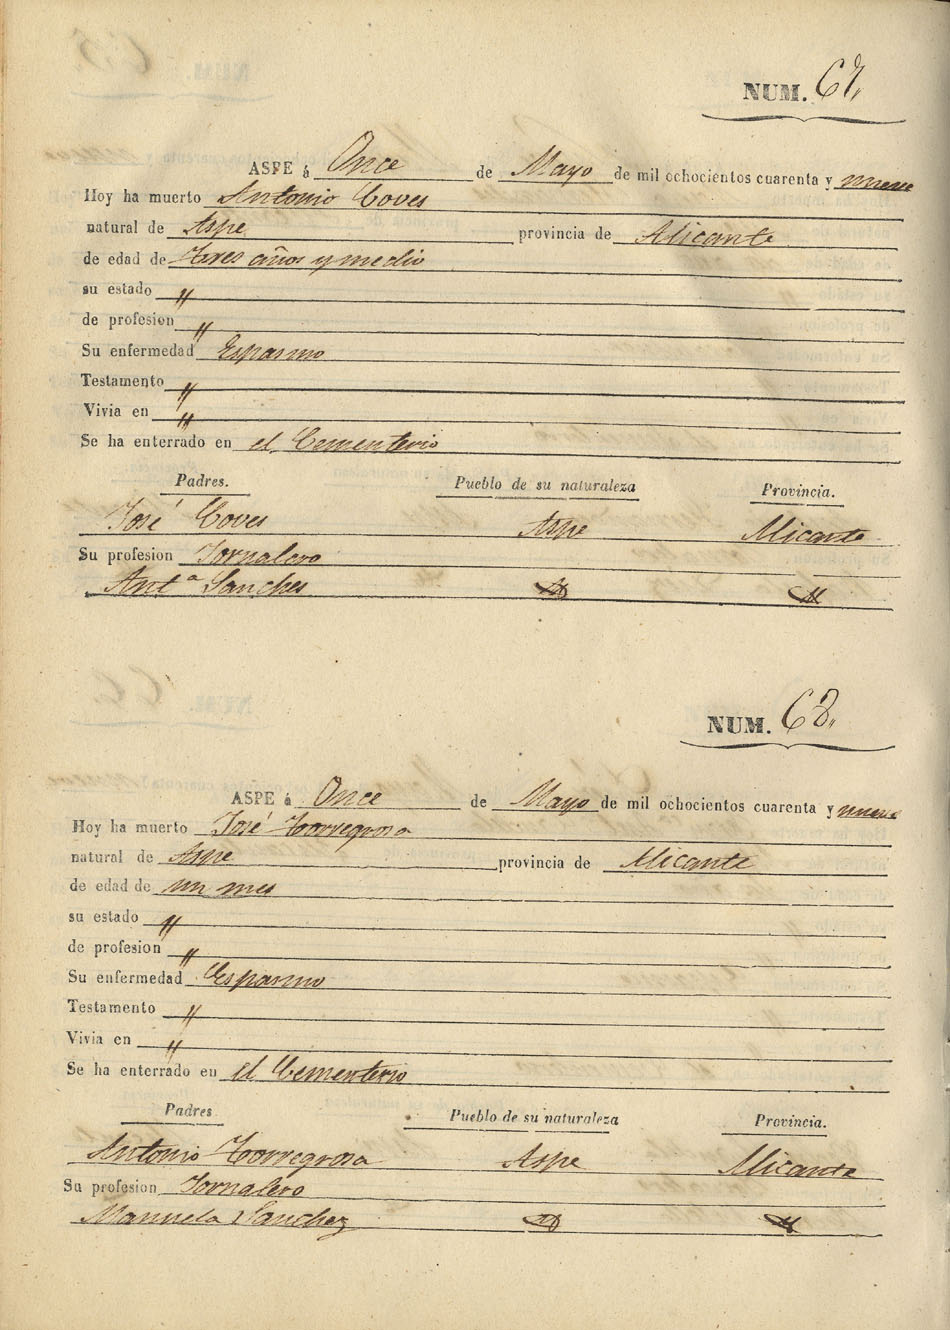 NUM. 67,
ASPE á Once de Mayo de mil ochocientos cuarenta y nueve
Hoy ha muerto Antonio Coves
natural de Aspe provincia de Alicante
de edad de Tres años y medio
su estado "
de profesion "
Su enfermedad Espasmo
Testamento "
Vivia en "
Se ha enterrado en el Cementerio
Padres. Pueblo de su naturaleza Provincia.
José Coves Aspe Alicante
Su profesion Jornalero
Antª Sanches
NUM. 68,
ASPE á Once de Mayo de mil ochocientos cuarenta y nueve
Hoy ha muerto José Torregrosa
natural de Aspe provincia de Alicante
de edad de un mes
su estado "
de profesion "
Su enfermedad Espasmo
Testamento "
Vivia en "
Se ha enterrado en el Cementerio
Padres Pueblo de su naturaleza Provincia.
Antonio Torregrosa Aspe Alicante
Su profesion Jornalero
Manuela Sanchez